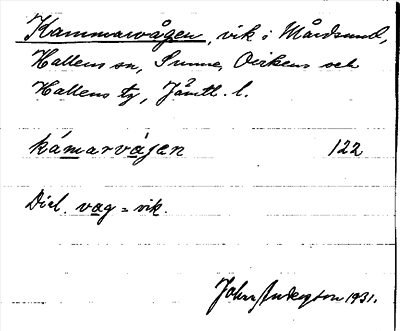 Kammarvågen, vik i Mårdsund,
Hallens sn, Sunne, Ovikens och
Hallens tg, Jämtl. l.
kámarvágen 122
Dial. vag = vik.
John Anderzson 1931.